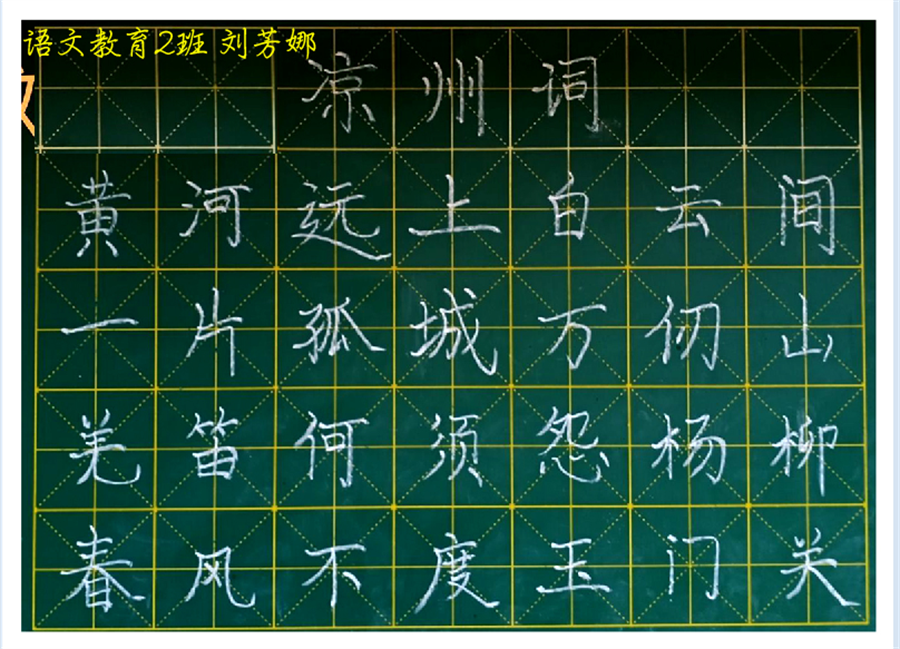 语文教育2班 刘芳娜
凉州词
黄河远上白云间
一片孤城万仞山
羌笛何须怨杨柳
春风不度玉门关